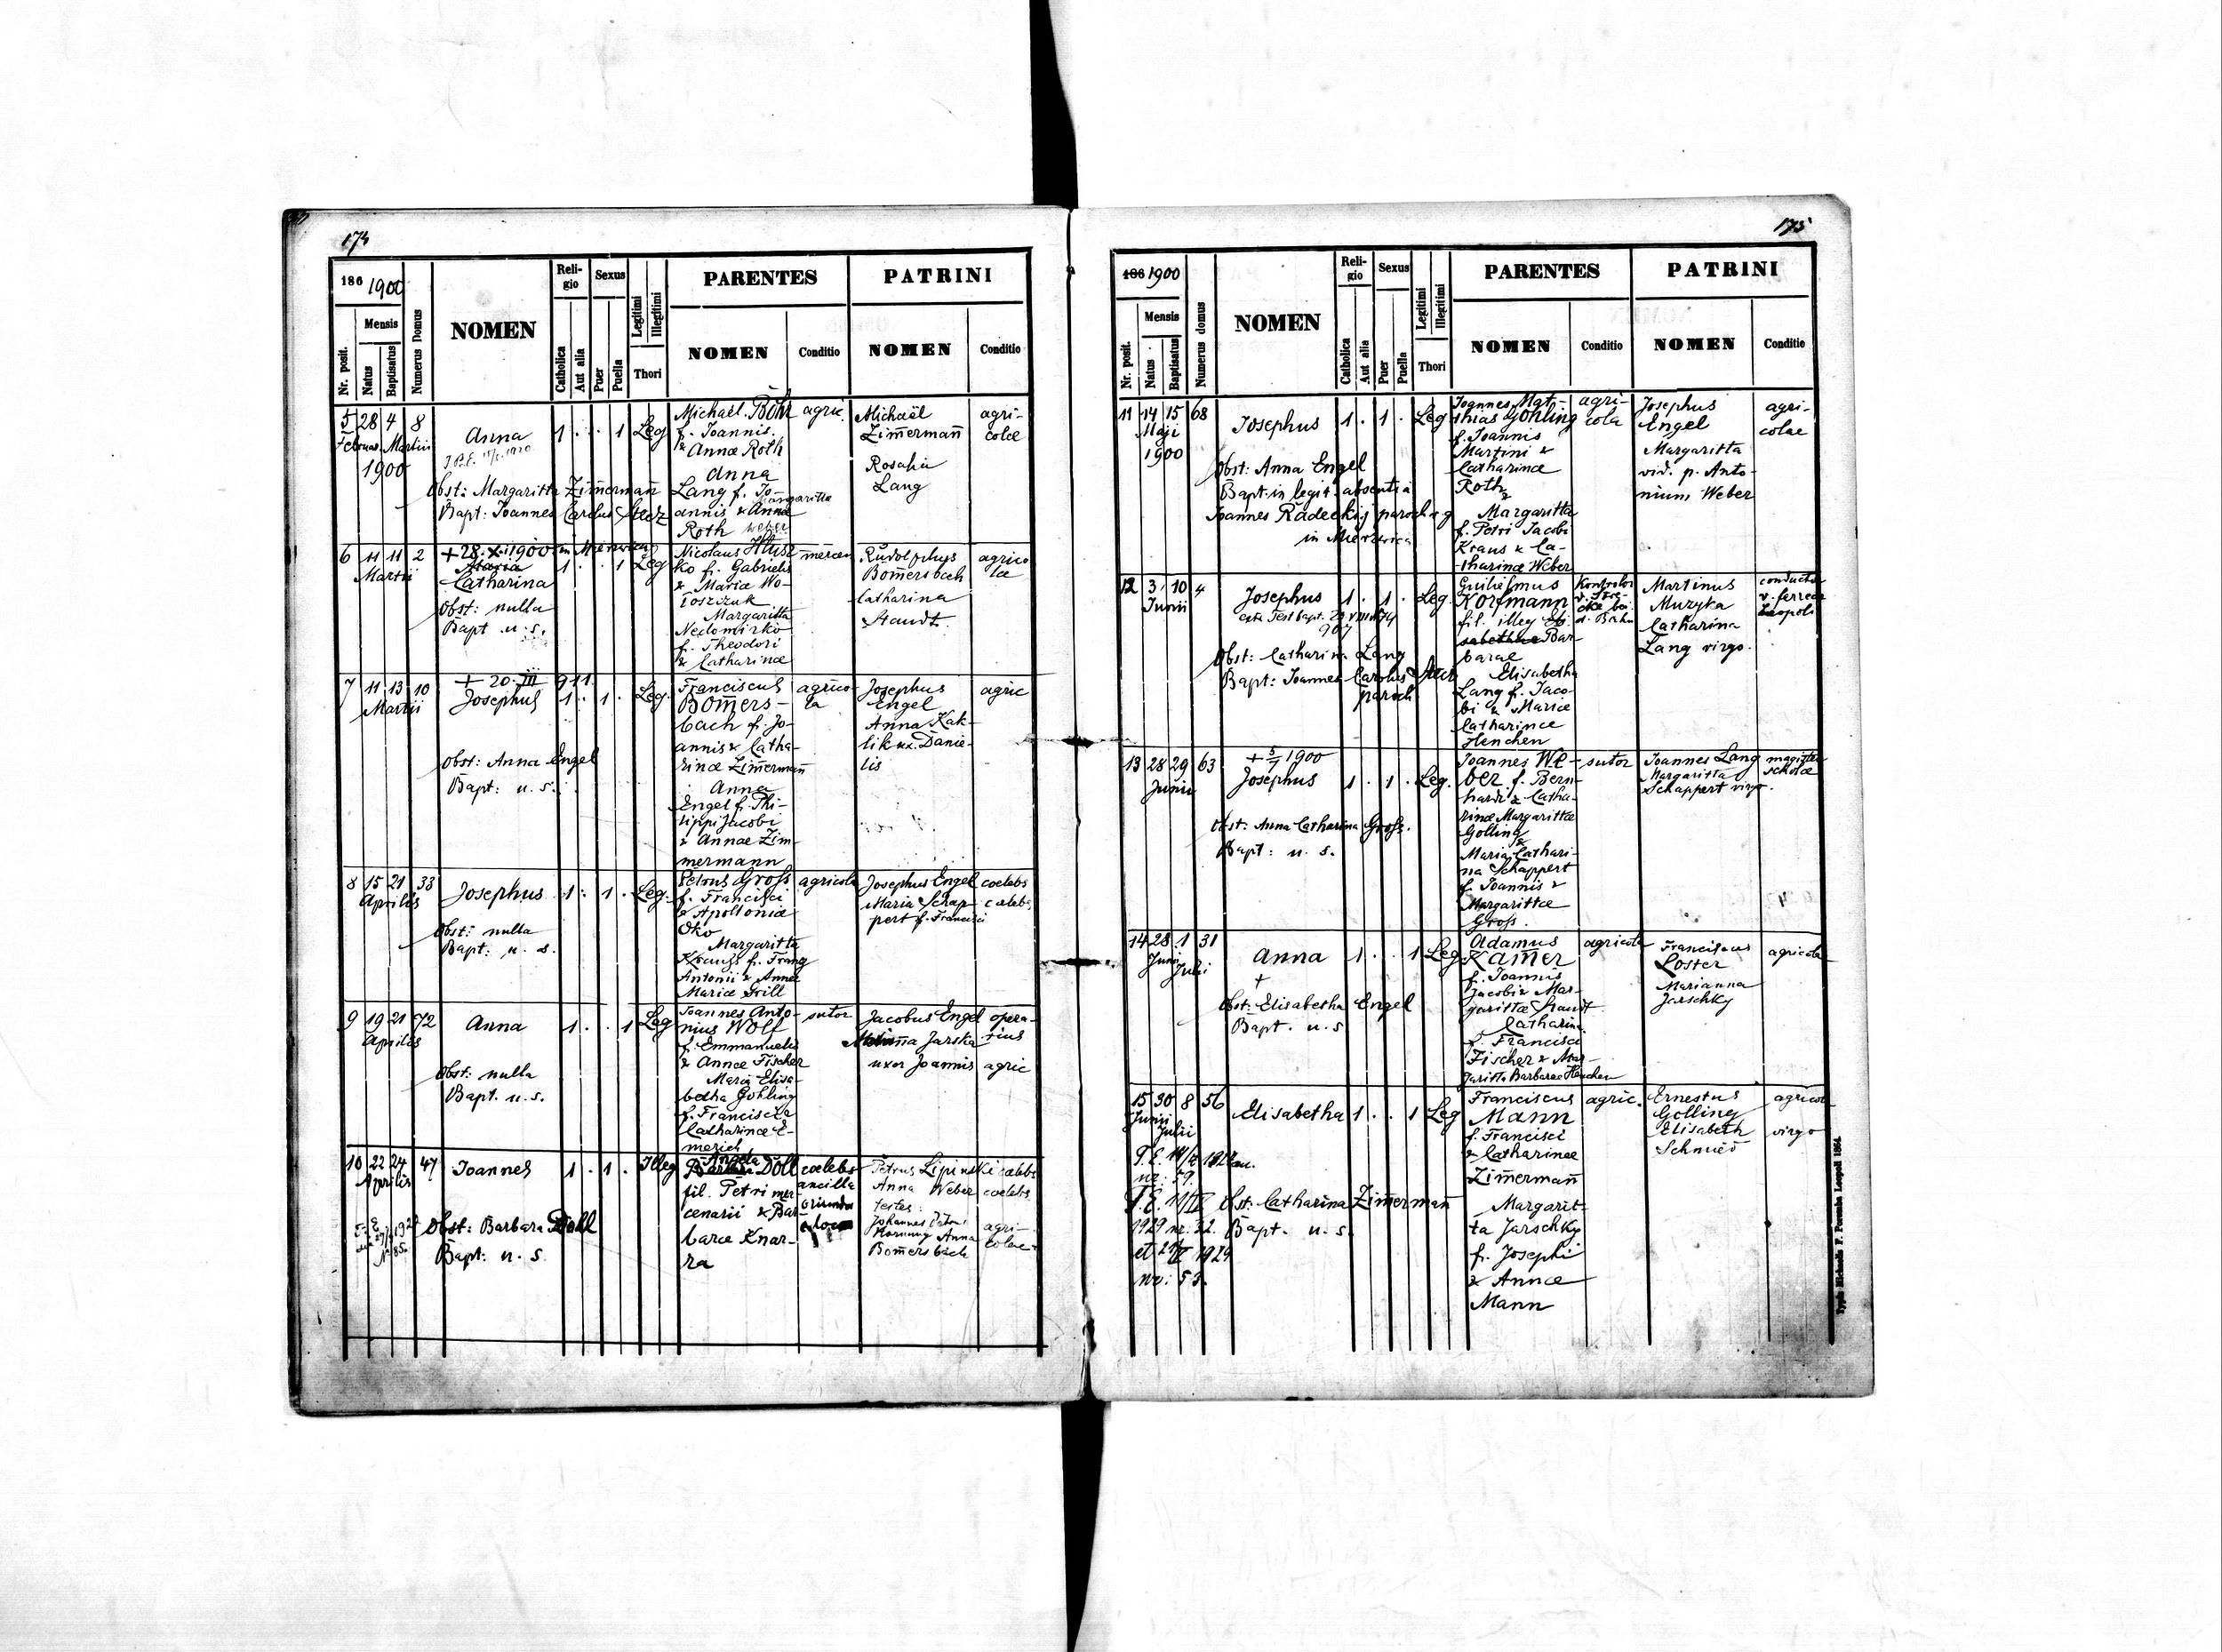 174
186 1900
Nr. posit.
Mensis
Natus
Baptisatus
Numerus Domus
NOMEN
Religio
Catholica
Aut alia
Sexus
Puer
Puella
Legitimi
Illegitimi
Thori
PARENTES
NOMEN
Conditio
PATRINI
NOMEN
Conditio
5 28 4 8
Februar. Martii
1900
Anna
1 . . 1 Leg
Obst: Margaritta Zimermann
Bapt: Joannes Carolus
Michael Böhr
f. Joannis
& Annæ Roth
Anna
Lang f. Jo-
annis & Annæ
Margaritta
Roth Weber
agric.
Michaël
Zimermann
Rosalia
Lang
agri-
colæ
6 11 11 2
Martii
+ 28.X.1900 in Mierzwica
Maria
Catharina
1 . . 1 Leg
Obst: nulla
Bapt. u. s.
Nicolaus Hlusz
ko f. Gabrielis
& Mariæ Wo-
loszczuk
Margaritta
Nedomirko
f. Theodori
& Catharinæ
mercen
Rudolphus
Bomersbach
Catharina
Staudt
agrico
læ
7 11 13 10
Martii
+ 20. III 911.
Josephus
1 . 1 . Leg.
Obst: Anna Engel
Bapt: u. s.
Franciscus
Bomers-
bach f. Jo-
annis & Catha-
rinæ Zimermann
Anna
Engel f. Phi-
lippi Jacobi
& Annae Zim-
mermann
agrico-
la
Josephus
Engel
Anna Kak-
lik ux. Danie-
lis
agric
8 15 21 38
Aprilis
Josephus
1 . 1 . Leg.
Obst: nulla
Bapt: u. s.
Petrus Gross
f. Francisci
& Apolloniæ
Oko
Margaritta
Krauss f. Franz
Antonii & Annæ
Mariæ Grill
agricola
Josephus Engel
Maria Schap-
pert f. Francisci
coelebs
coelebs
9 19 21 72
Aprilis
Anna
1 . . 1 Leg
Obst: nulla
Bapt. u. s.
Joannes Anto-
nius Wolf
f. Emmanuelis
& Annæ Fischer
Maria Elisa-
betha Gohling
f. Francisci &
Catharinæ E-
merich
sutor
Jacobus Engel
Jarska
uxor Joannis
opera-
rius
agric
10 22 24 47
Aprilis
Joannes
1 . 1 . Illeg
Obst: Barbara Doll
Bapt: u. s.
Angela
Barbara Doll
fil. Petri mer-
cenarii & Bar-
baræ Knar-
ra
coelebs
ancilla
oriunda
Petrus Lipinski
Anna Weber
testes:
Johannes
Hornung Anna
Bomersbach
coelebs
coelebs
agri-
colae
175
186 1900
Nr. posit.
Mensis
Natus
Baptisatus
Numerus domus
NOMEN
Religio
Catholica
Aut alia
Sexus
Puer
Puella
Legitimi
Illegitimi
Thori
PARENTES
NOMEN
Conditio
PATRINI
NOMEN
Conditio
11 14 15 68
Maji
1900
Josephus
1 . 1 . Leg
Obst: Anna Engel
Bapt. in legit. absentia
Joannes Radeckij paroch. r. g
in Mierzwica
Joannes Mat-
thias Gohling
f. Joannis
Martini &
Catharinæ
Roth
&
Margaritta
f. Petri Jacobi
Kraus & Ca-
tharinæ Weber
agri-
cola
Josephus
Engel
Margaritta
vid. p. Anto-
nium Weber
agri-
colae
12 3 10 4
Junii
Josephus
1 . 1 . Leg.
907
Obst: Catharina Lang
Bapt: Joannes Carolus
paroch
Guilielmus
Korfmann
fil. illeg. Eli-
sabethae Bar-
barae
Elisabetha
Lang f. Jaco-
bi & Mariæ
Catharinæ
Henchen
Kontrolor
Martinus
Muzyka
Catharina
Lang virgo.
conductor
v. ferreae
Leopoli
13 28 29 63
Junii
+ 5/7 1900
Josephus
1 . 1 . Leg.
Obst: Anna Catharina Gross.
Bapt: u. s.
Joannes We-
ber f. Bern-
hardi & Catha-
rinæ Margarittæ
Golling
&
Maria Cathari-
na Schappert
f. Joannis &
Margarittæ
Gross.
sutor
Joannes Lang
Margaritta
Schappert virgo.
magister
scholæ
14 28 1 31
Junii Julii
Anna
+
1 . . 1 Leg
Obst: Elisabetha Engel
Bapt. u. s
Adamus
Kamer
f. Joannis
Jacobi & Mar-
garittæ Staudt
Catharina
f. Francisci
Fischer & Mar-
garitta Barbarae Henchen
agricola
Franciscus
Loster
Marianna
Jarschky
agricola
15 30 8 56
Junii
Julii
Elisabetha
1 . . 1 Leg
nr: 59.
1929 nr. 32.
1929
nr: 53.
Obst. Catharina Zimermann
Bapt. u. s.
Franciscus
Mann
f. Francisci
& Catharinæ
Zimermann
Margarit-
ta Jarschky
f. Josephi
& Annæ
Mann
agric.
Ernestus
Golling
Elisabeth
Schmied
agricola
virgo
Typis Michaelis F. Poremba Leopoli 1864.